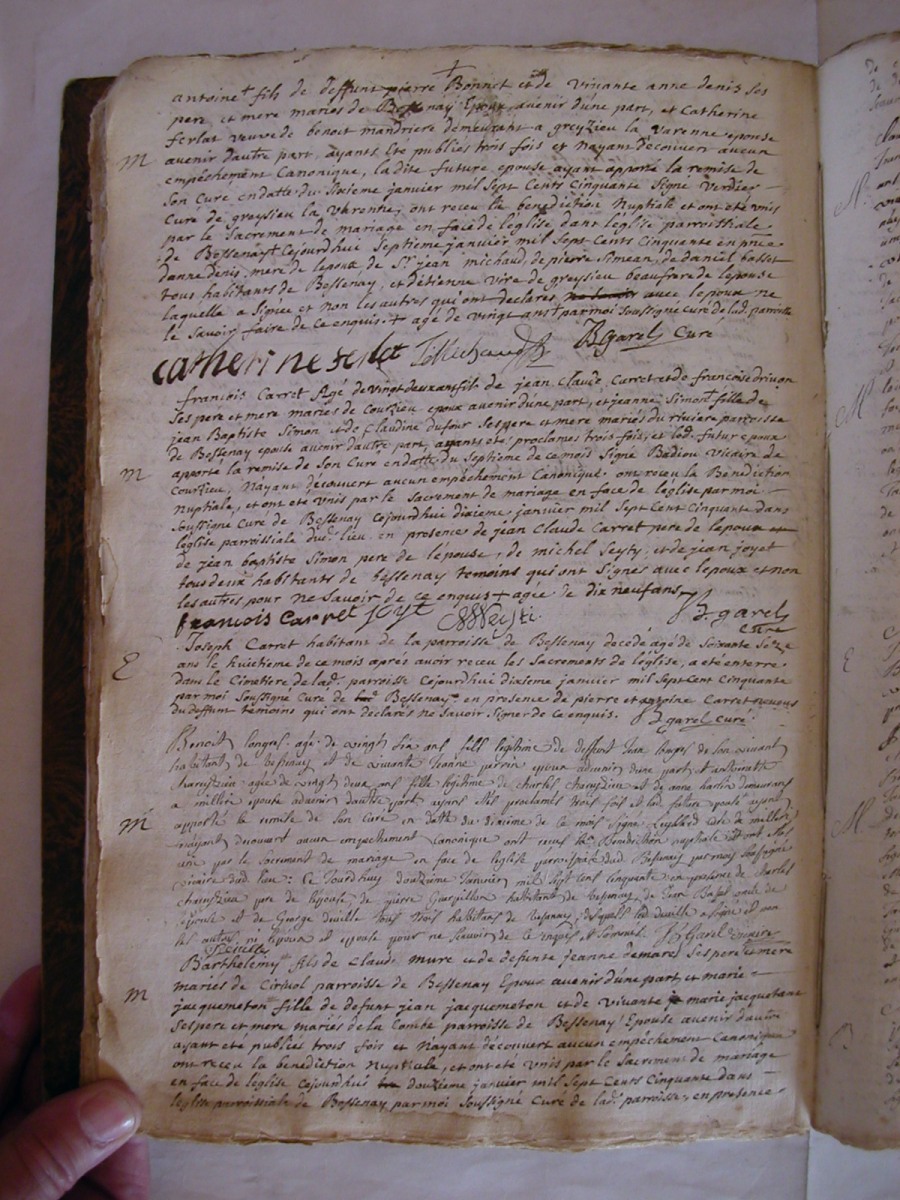 antoine + fils de deffunt pierre Bonnet et de vivante anne denis ses
pere et mere mariés de Bessenay Epoux avenir d'une part, et Catherine
ferlat veuve de benoit mandriere demeurant a greyzieu la varenne epouse
avenir dautre part, ayants été publiés trois fois et nayant decouvert aucun
empêchement Canonique, la dite future epouse ayant apporté la remise de
Son Curé endatte du Sixieme janvier mil Sept Cents Cinquante Signé verdier
Curé de greysieu la varenne, ont receu la benediction Nuptiale et ont eté unis
par le Sacrement de mariage en face de léglise dans léglise parroissiale
de Bessenay Cejourdhui Septieme janvier mil Sept Cents Cinquante en pnce
danne denis mere de lepoux, de Sr jean michaud, de pierre Simean, de daniel basset
tous habitants de Bessenay, et détienne vire de greysieu beaufrere de lepouse
laquelle a Signée et non les autres qui ont declarés avec lepoux ne
le Savoir faire de ce enquis. + agé de vingt ans + par moi Soussigné curé de lad. parroisse
Catherine ferlat Bgarel Curé
françois Carret Agé de vingt deux ans fils de jean Claude Carret et de françoise drivon
Ses pere et mere mariés de Courzieu epoux avenir dune part, et jeanne Simon + fille de
jean Baptiste Simon et de Claudine dufour Ses pere et mere mariés du riviere parroisse
de Bessenay epouse avenir d'autre part, ayants eté proclamés trois fois, et led. futur epoux
apporté la remise de Son Curé endatte du Septieme de ce mois Signé Badiou vicaire de
Courzieu, Nayant découvert aucun empêchement Canonique, ont receu la Bénédiction
Nuptiale, et ont eté unis par le Sacrement de mariage en face de léglise par moi
Soussigné Curé de Bessenay Cejourdhui dixieme janvier mil Sept Cent Cinquante dans
léglise parroissiale dud. lieu en presence de jean Claude Carret pere de lepoux
de jean baptiste Simon pere de lépouse, de michel Seyty, et de jean joyet
tous deux habitants de bessenay temoins qui ont Signés avec lepoux et non
les autres pour ne Savoir de ce enquis + agée de dix neuf ans
francois Carret joyt MSeyti B. garel
Curé
Joseph Carret habitant de la parroisse de Bessenay decedé agé de Soixante Seize
ans le huitieme de ce mois après avoir receu les Sacrements de léglise, a eté enterré
dans le Cimetiere de lad. parroisse Cejourdhui dixieme janvier mil Sept Cent Cinquante
par moi Soussigné Curé de Bessenay en presence de pierre et antoine Carret neveus
du deffunt temoins qui ont declarés ne Savoir Signer de ce enquis. B garel curé
Benoit agé de vingt Six ans fils legitime de deffunt Jean de Son vivant
habitant de Bessenay et de vivante Jeanne perrin epoux advenir dune part et
agée de vingt deux ans fille legitime de Charles et de anne
a millery epouse advenir dautre part ayans etés proclamés trois fois et lad future ayant
apporté la remise de Son Curé en datte du dixieme de ce mois Signé curé de millery
nayant decouvert aucun empechement canonique ont receus la Benediction nuptiale et ont etés
unis par le Sacrement de mariage en face de leglise parroissiale dud Bessenay par nous Soussigné
vicaire dud lieu Ce Jourdhuy douzieme Janvier mil Sept cens cinquante en presence de Charles
pere de lepouse, de pierre habitant de Bessenay de Jean oncle de
lépoux et de George deville tous trois habitans de Bessenay desquels led deville a Signé et non
les autres ni lepoux et epouse pour ne Scavoir de ce enquis et Sommés. Garel vicaire
deville
Barthelemy fils de Claude mure et de defunte jeanne demare Ses pere et mere
mariés de Ciriuol parroisse de Bessenay Epoux avenir d'une part et marie
jacquemeton fille de defunt jean jacquemeton et de vivante marie
Ses pere et mere mariés de la Combe parroisse de Bessenay Epouse avenir d'autre
ayant eté publiés trois fois et Nayant découvert aucun empêchement Canonique
ont receu la benediction Nuptiale, et ont eté unis par le Sacrement de mariage
en face de léglise cejourdhui douzieme janvier mil Sept Cents Cinquante dans
léglise parroissiale de Bessenay, par moi Soussigné Curé de lad. parroisse, en presence